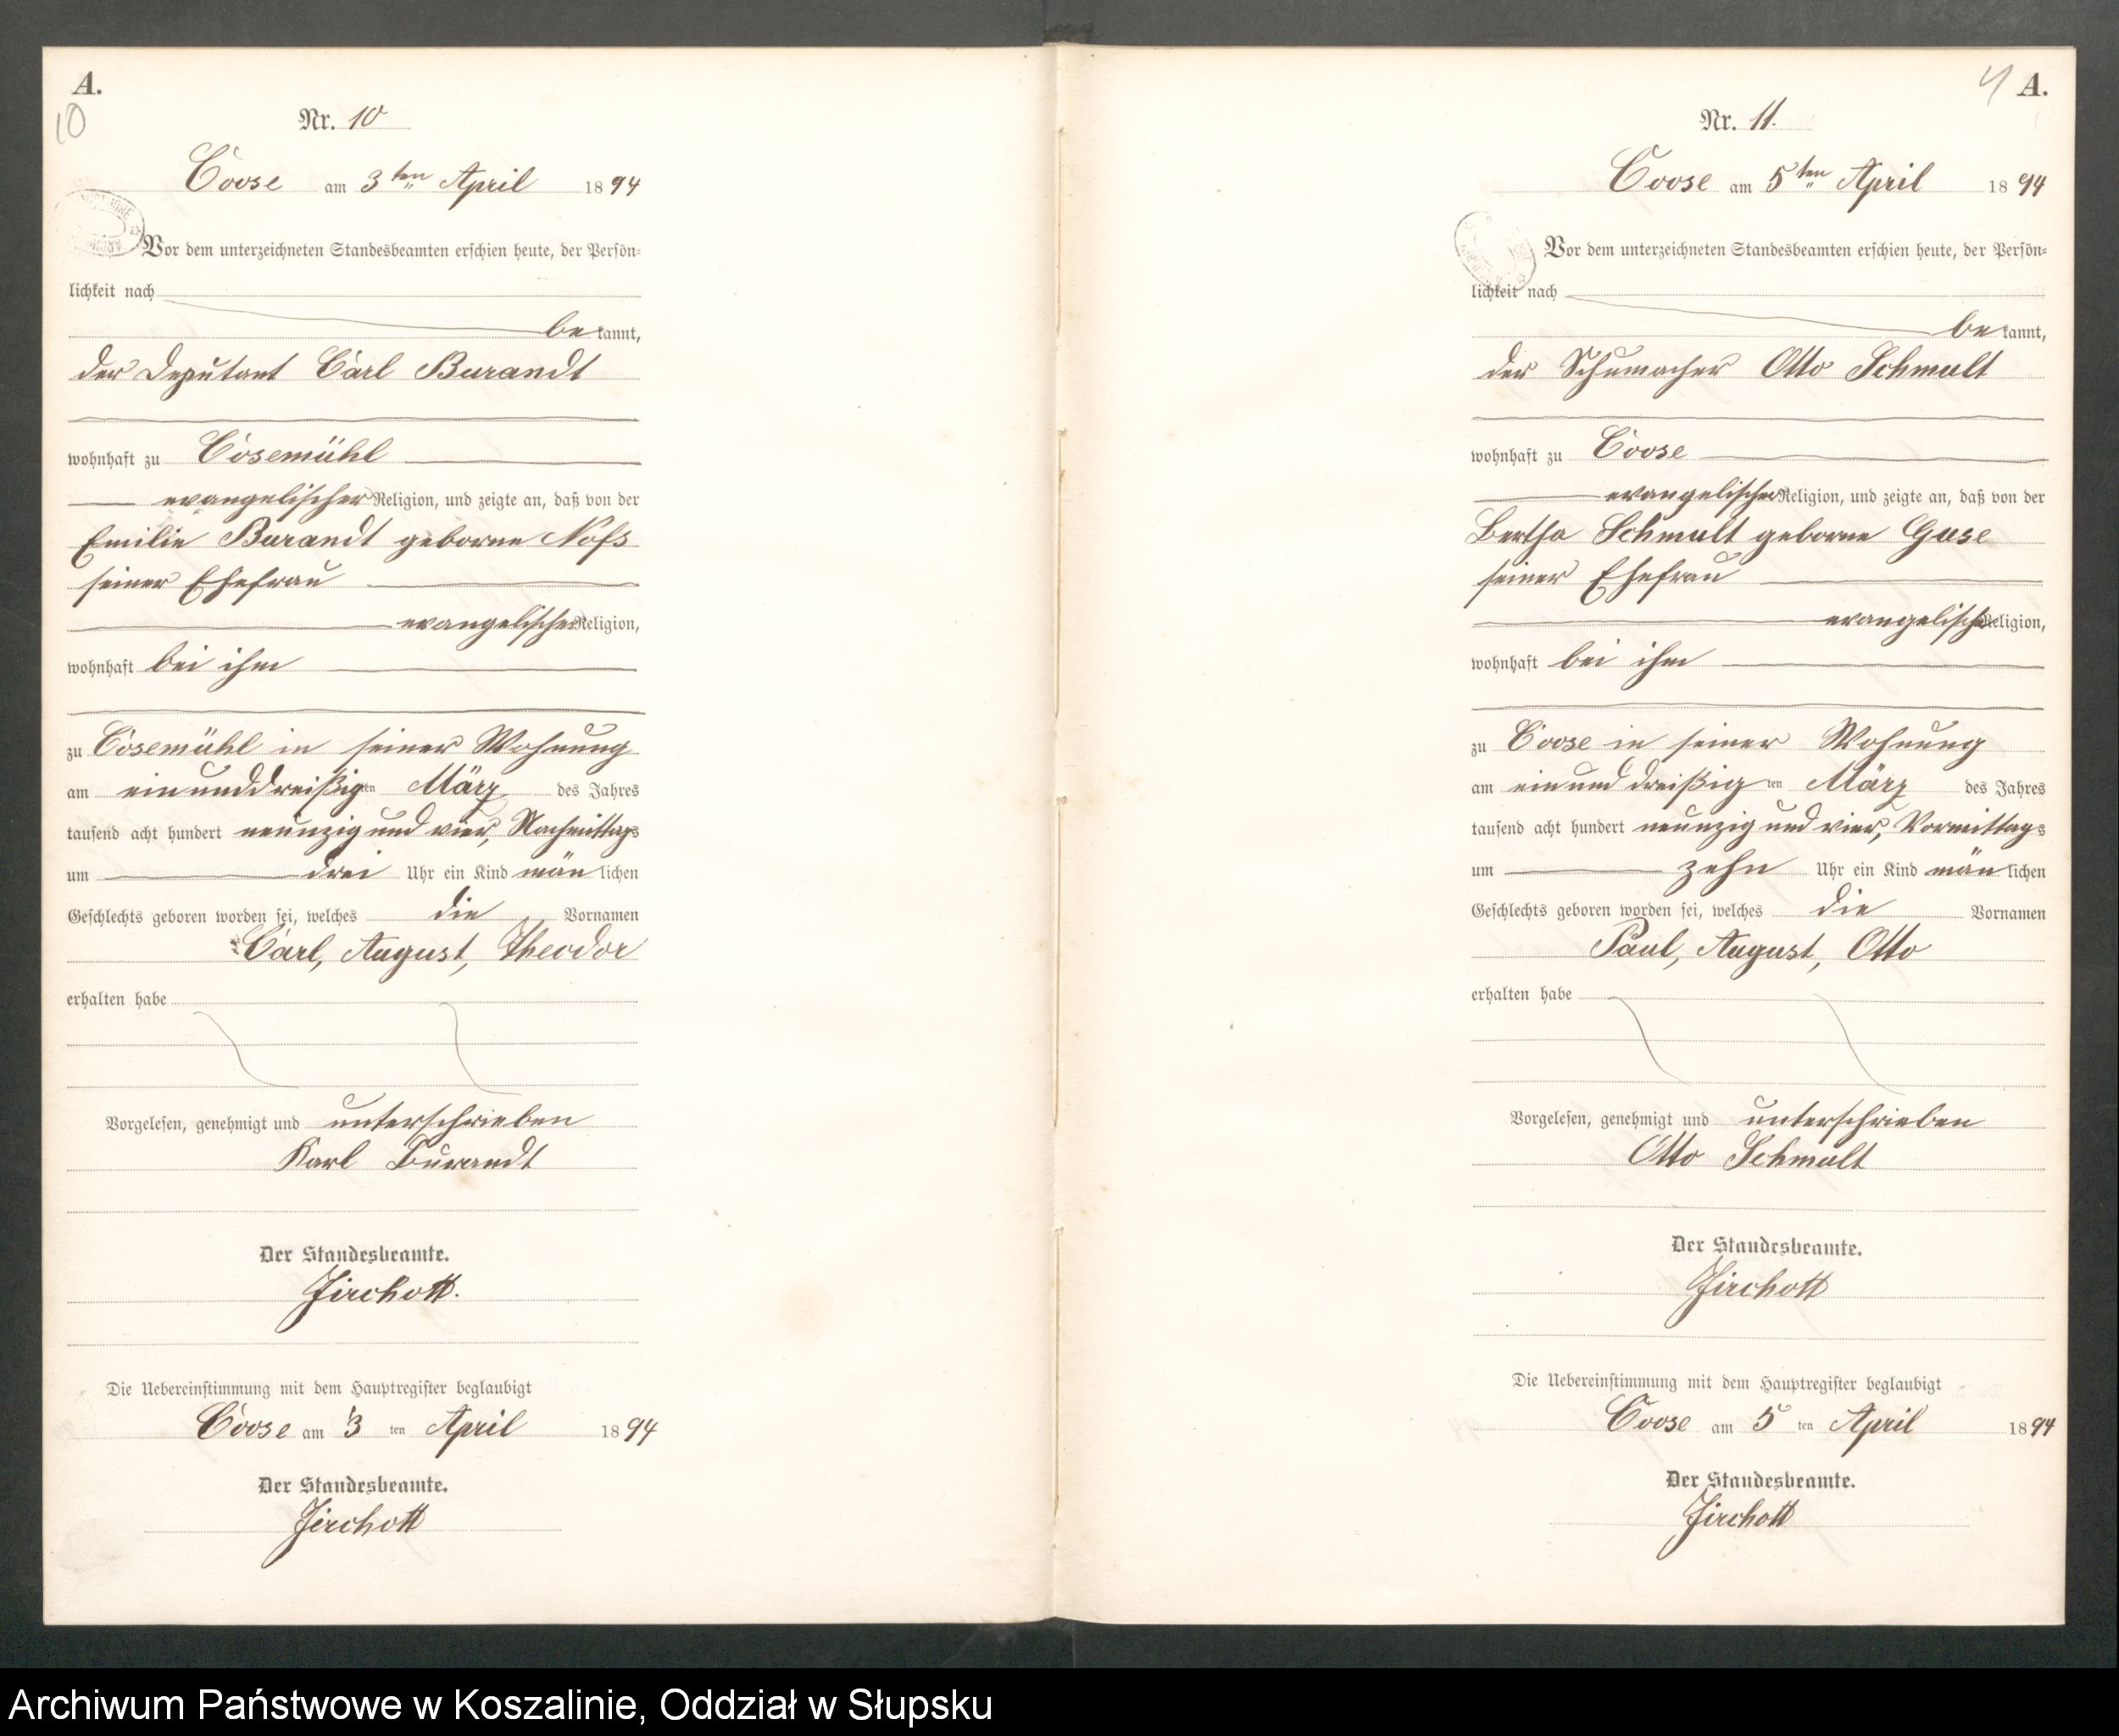 A.
10
Nr. 10
Coose am 3ten April 1894
Vor dem unterzeichneten Standesbeamten erschien heute, der Persön-
lichkeit nach
bekannt,
der Deputant Carl Burandt
wohnhaft zu Cosemühl
evangelischer Religion, und zeigte an, daß von der
Emilie Burandt geborne Noss
seiner Ehefrau
evangelischer Religion,
wohnhaft bei ihm
zu Cosemühl in seiner Wohnung
am einunddreißigten März des Jahres
tausend acht hundert neunzig und vier, Nachmittags
um drei Uhr ein Kind mänlichen
Geschlechts geboren worden sei, welches die Vornamen
Carl, August, Theodor
erhalten habe
Vorgelesen, genehmigt und unterschrieben
Karl Burandt
Der Standesbeamte.
Jirchott.
Die Uebereinstimmung mit dem Hauptregister beglaubigt
Coose am 3 ten April 1894
Der Standesbeamte.
Jirchott
4 A.
Nr. 11.
Coose am 5ten April 1894
Vor dem unterzeichneten Standesbeamten erschien heute, der Persön-
lichkeit nach
bekannt,
der Schumacher Otto Schmalt
wohnhaft zu Coose
evangelischer Religion, und zeigte an, daß von der
Bertha Schmalt geborne Guse
seiner Ehefrau
evangelischer Religion,
wohnhaft bei ihm
zu Coose in seiner Wohnung
am ein und dreißigten März des Jahres
tausend acht hundert neunzig und vier, Vormittags
um zehn Uhr ein Kind mänlichen
Geschlechts geboren worden sei, welches die Vornamen
Paul, August, Otto
erhalten habe
Vorgelesen, genehmigt und unterschrieben
Otto Schmalt
Der Standesbeamte.
Jirchott
Die Uebereinstimmung mit dem Hauptregister beglaubigt
Coose am 5 ten April 1894
Der Standesbeamte.
Jirchott
Archiwum Państwowe w Koszalinie, Oddział w Słupsku